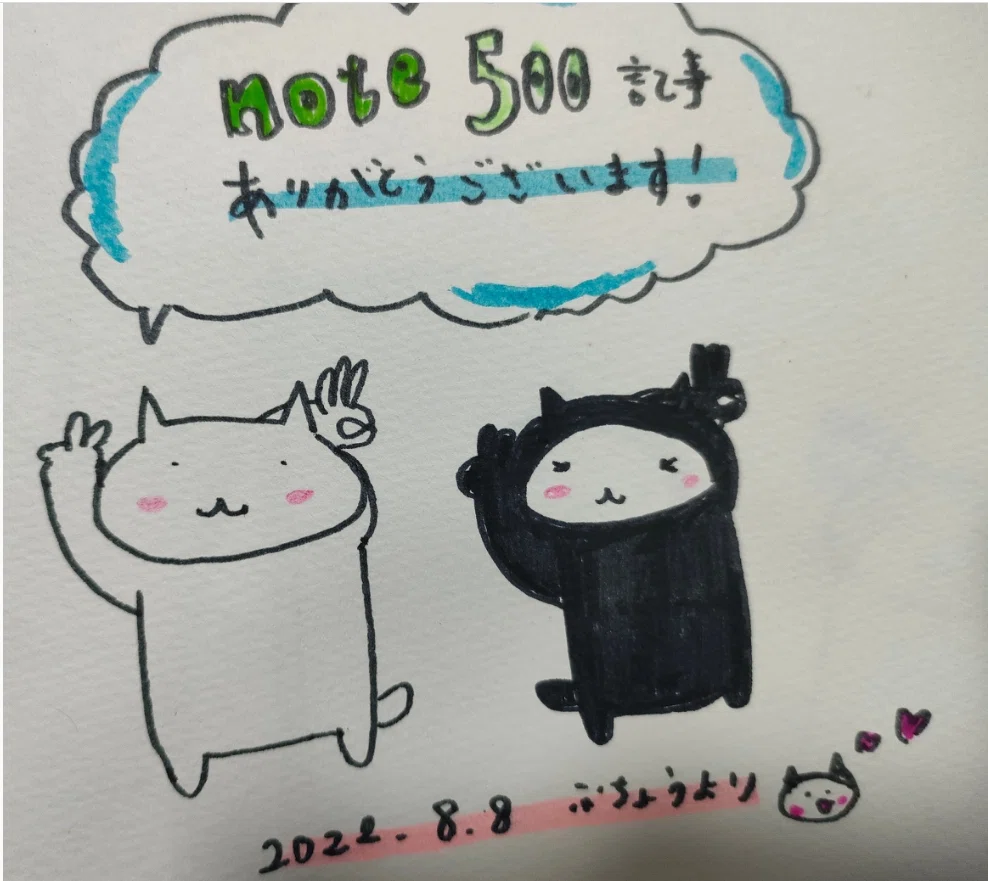 note 500 記事
ありがとうございます!
2022.8.8 ぶちょうより